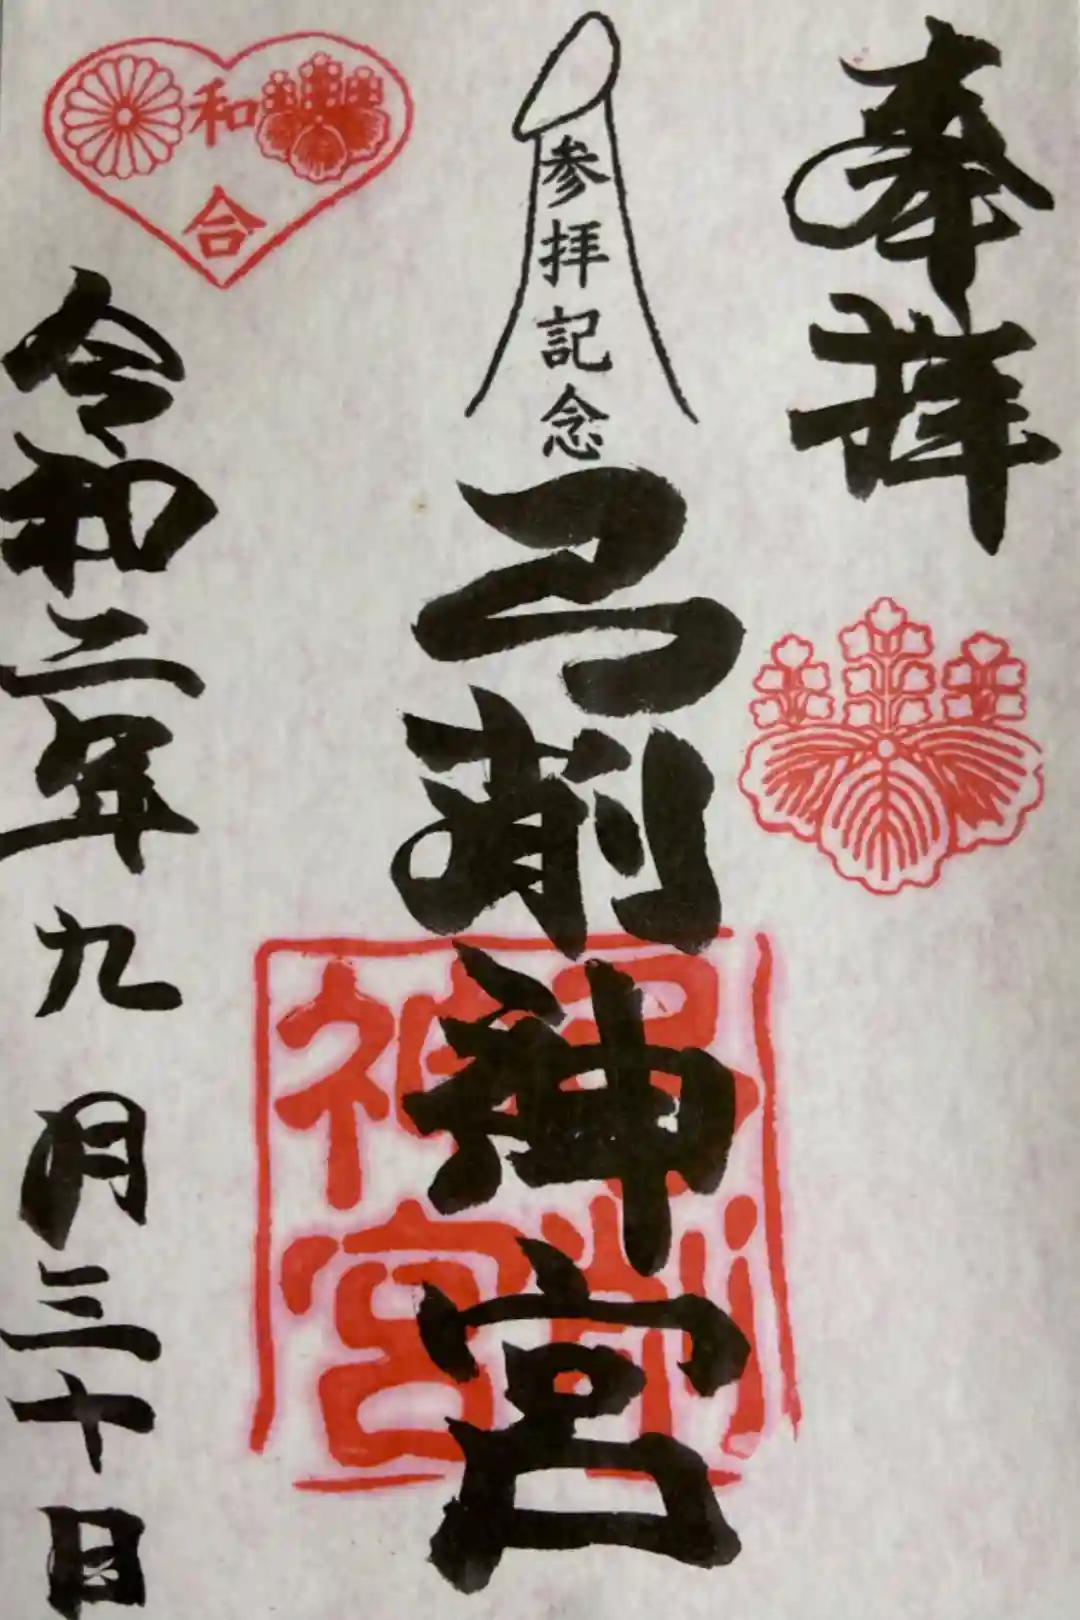 奉拝
参拝記念
弓削神宮
弓削
神宮
和
合
令和二年九月三十日